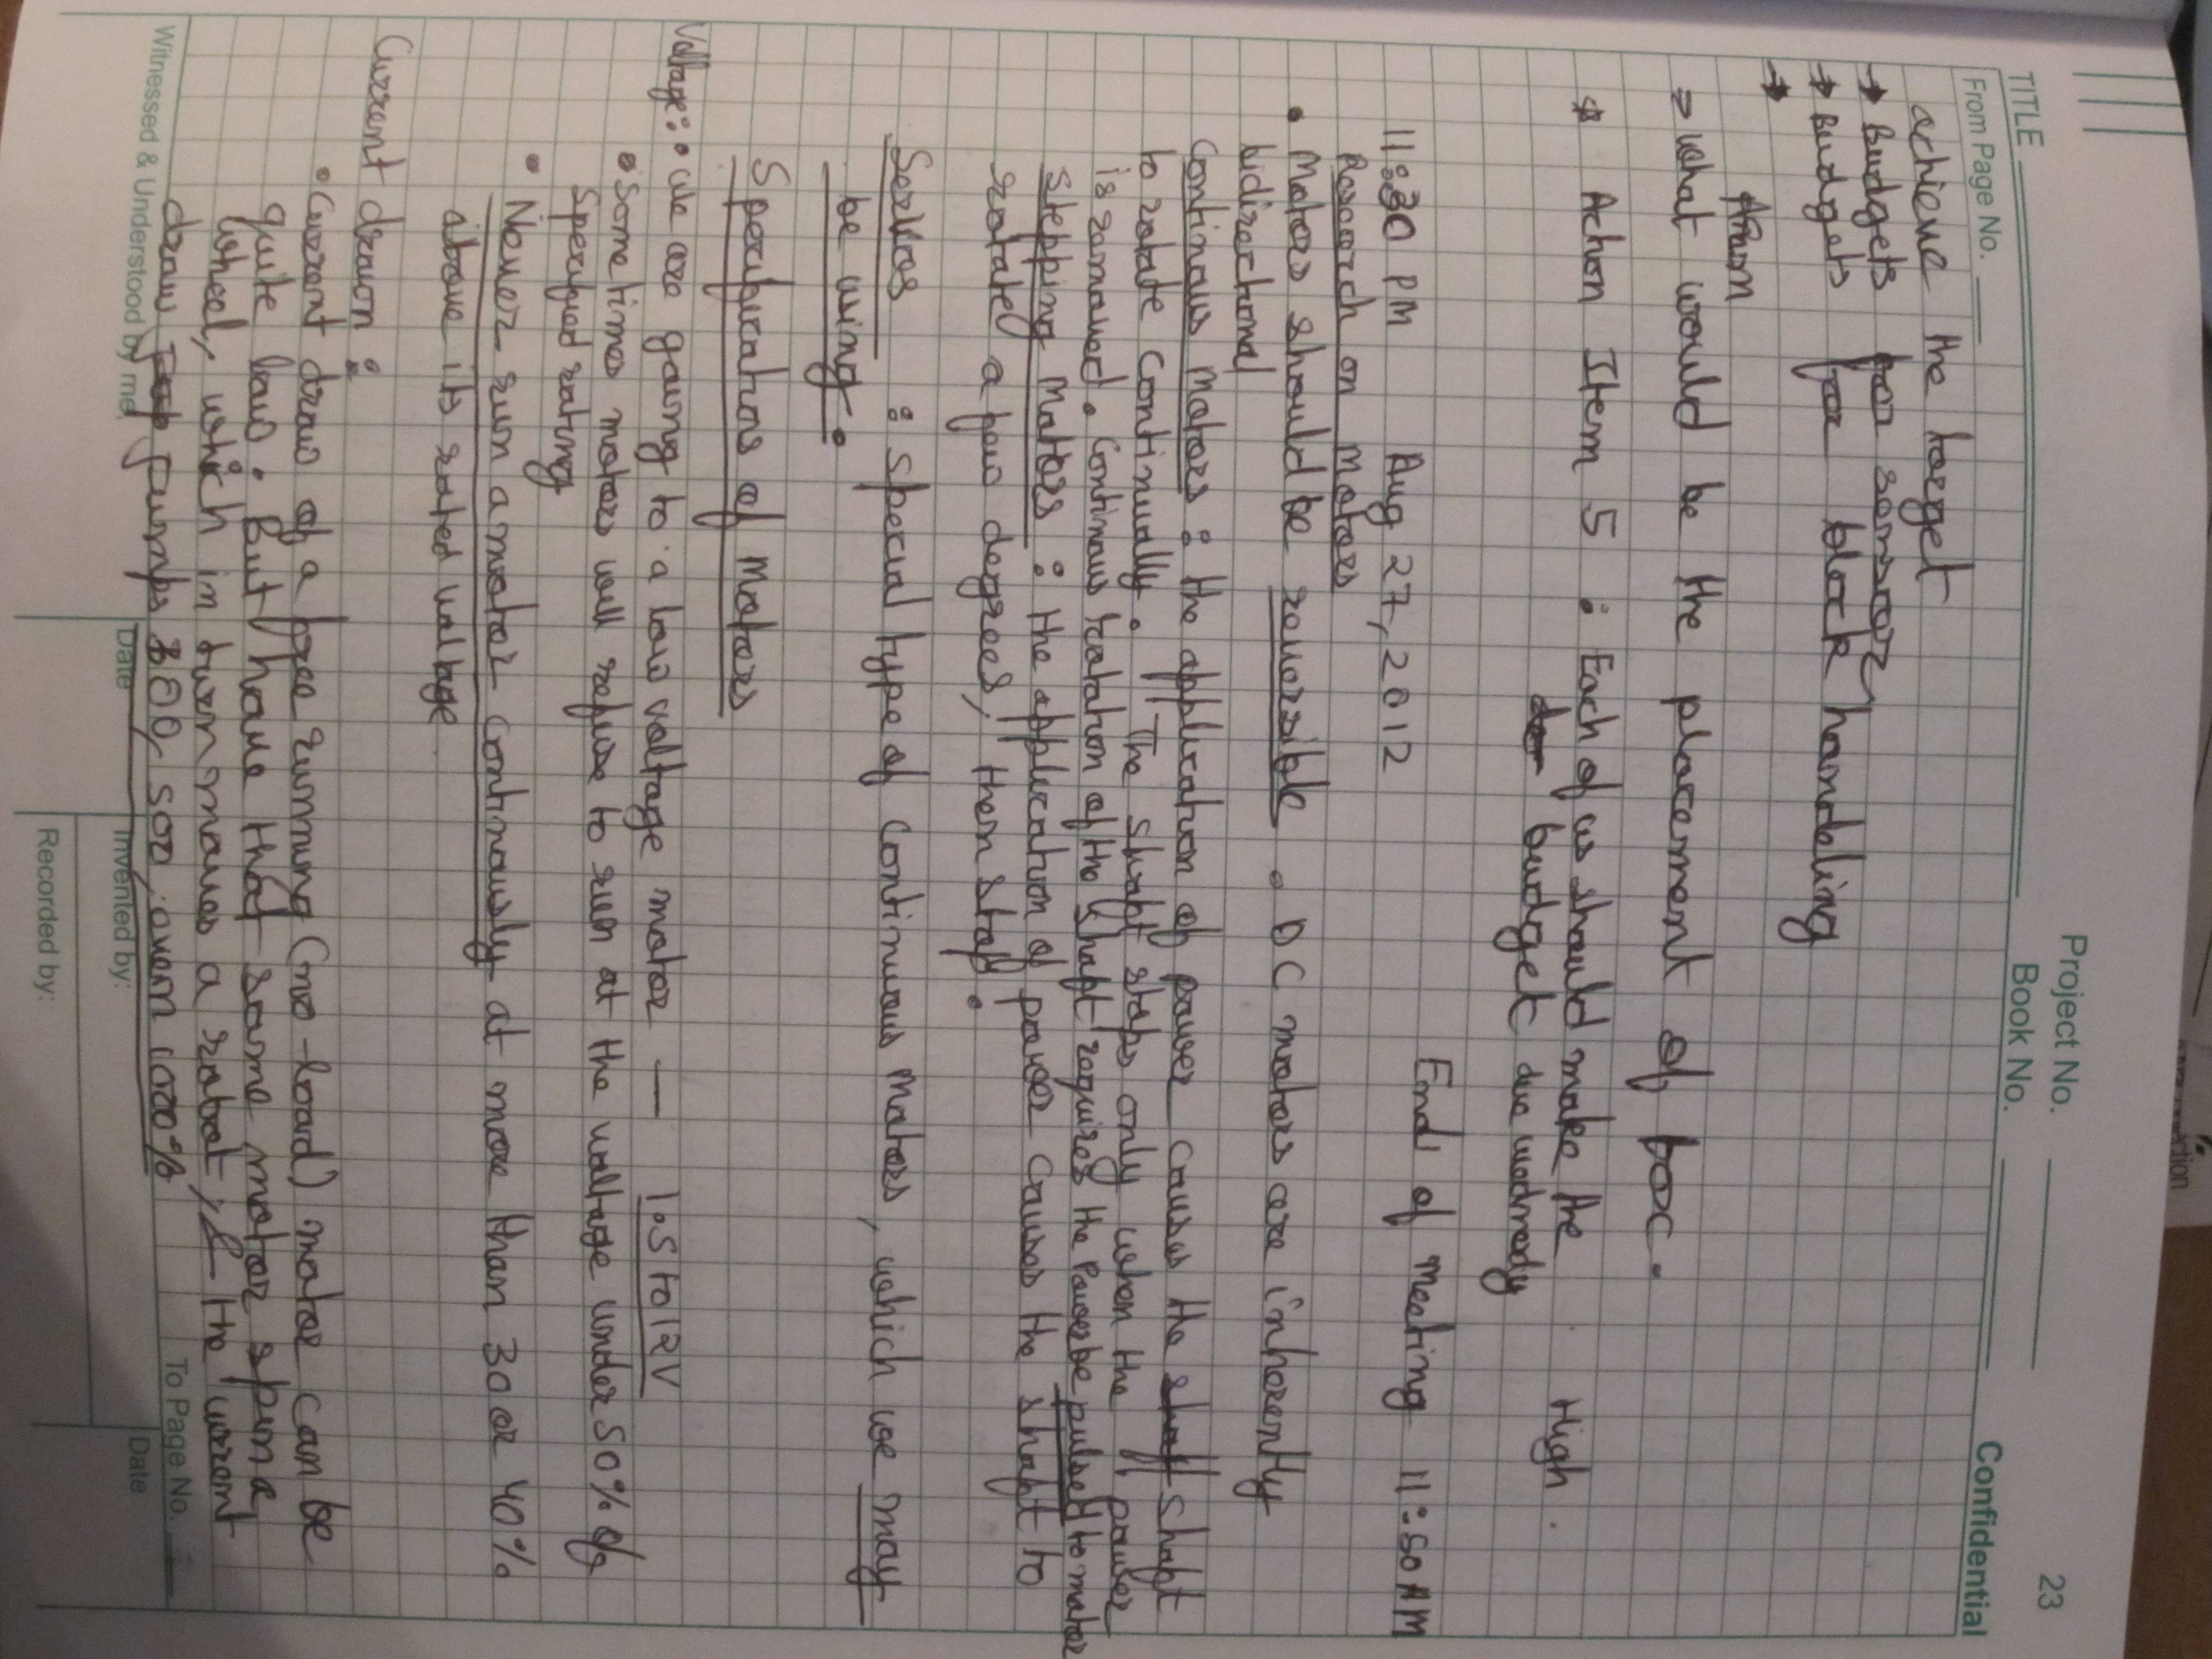 23
Project No.
TITLE
Book No.
Confidential
From Page No.
achieve the target
→ Budgets for sensors
→ Budgets for block handeling
→
Arm
=> what would be the placement of box.
* Action Item 5 : Each of us should make the High
budget due wednesdy
End of meeting 11:50 AM
11:30 PM Aug 27, 2012
Research on Motors
• Motors should be reversible. DC motors are inherently
bidirectional
Continous Motors : the application of power causes the shaft shaft
to rotate continually. The shaft stops only when the power
is removed. Continous rotation of the shaft requires the Power be pulsed to motor
Stepping Motors : the application of power causes the shaft to
rotate a few degrees, then stop.
Servos : special type of continuous Motors, which we may
be using.
Specifications of Motors
Voltage: • we are going to a low voltage motor — 1.5 to 12V
• Some times motors will refuse to run at the voltage under 50% of
specified rating
• Never run a motor continously at more than 30 or 40%
above its rated voltage
Current drawn :
• Current draw of a free running (no-load) motor can be
quite low. But have that same motor spin a
wheel, which in turn moves a robot, & the current
draw jumps 300, 500, even 1000%
To Page No.
Witnessed & Understood by me,
Date
Invented by:
Date
Recorded by: